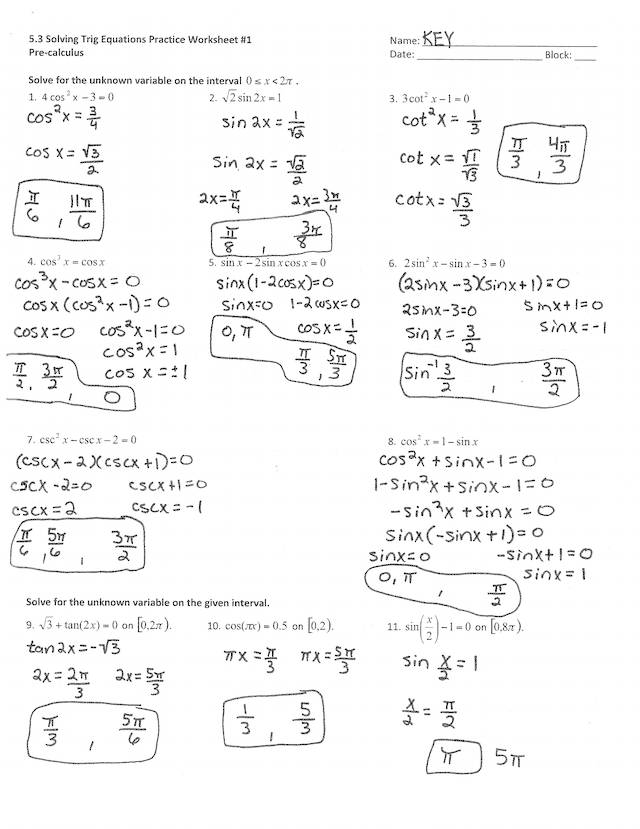 5.3 Solving Trig Equations Practice Worksheet #1
Name: KEY
Pre-calculus
Date: Block:
Solve for the unknown variable on the interval 0 ≤ x < 2π .
1. 4 cos² x − 3 = 0
cos²x = 3/4
cos x = √3/2
π/6 , 11π/6
2. √2 sin 2x = 1
sin 2x = 1/√2
sin 2x = √2/2
2x = π/4 2x = 3π/4
π/8 , 3π/8
3. 3cot² x − 1 = 0
cot²x = 1/3
cot x = √1/√3
cot x = √3/3
π/3 , 4π/3
4. cos³ x = cos x
cos³x − cosx = 0
cosx (cos²x − 1) = 0
cosx = 0 cos²x − 1 = 0
cos²x = 1
cos x = ±1
π/2 , 3π/2 , 0
5. sin x − 2sin x cos x = 0
sinx(1−2cosx)=0
sinx=0 1−2cosx=0
cosx = 1/2
0, π π/3 , 5π/3
6. 2sin² x − sin x − 3 = 0
(2sinx − 3)(sinx + 1) = 0
2sinx − 3 = 0 sinx + 1 = 0
sinx = 3/2 sinx = −1
sin⁻¹ 3/2 , 3π/2
7. csc² x − csc x − 2 = 0
(cscx − 2)(cscx + 1) = 0
cscx − 2 = 0 cscx + 1 = 0
cscx = 2 cscx = −1
π/6 , 5π/6 , 3π/2
8. cos² x = 1 − sin x
cos²x + sinx − 1 = 0
1 − sin²x + sinx − 1 = 0
−sin²x + sinx = 0
sinx(−sinx + 1) = 0
sinx = 0 −sinx + 1 = 0
sinx = 1
0, π , π/2
Solve for the unknown variable on the given interval.
9. √3 + tan(2x) = 0 on [0,2π).
tan2x = −√3
2x = 2π/3 2x = 5π/3
π/3 , 5π/6
10. cos(πx) = 0.5 on [0,2).
πx = π/3 πx = 5π/3
1/3 , 5/3
11. sin(x/2) − 1 = 0 on [0,8π).
sin x/2 = 1
x/2 = π/2
π 5π